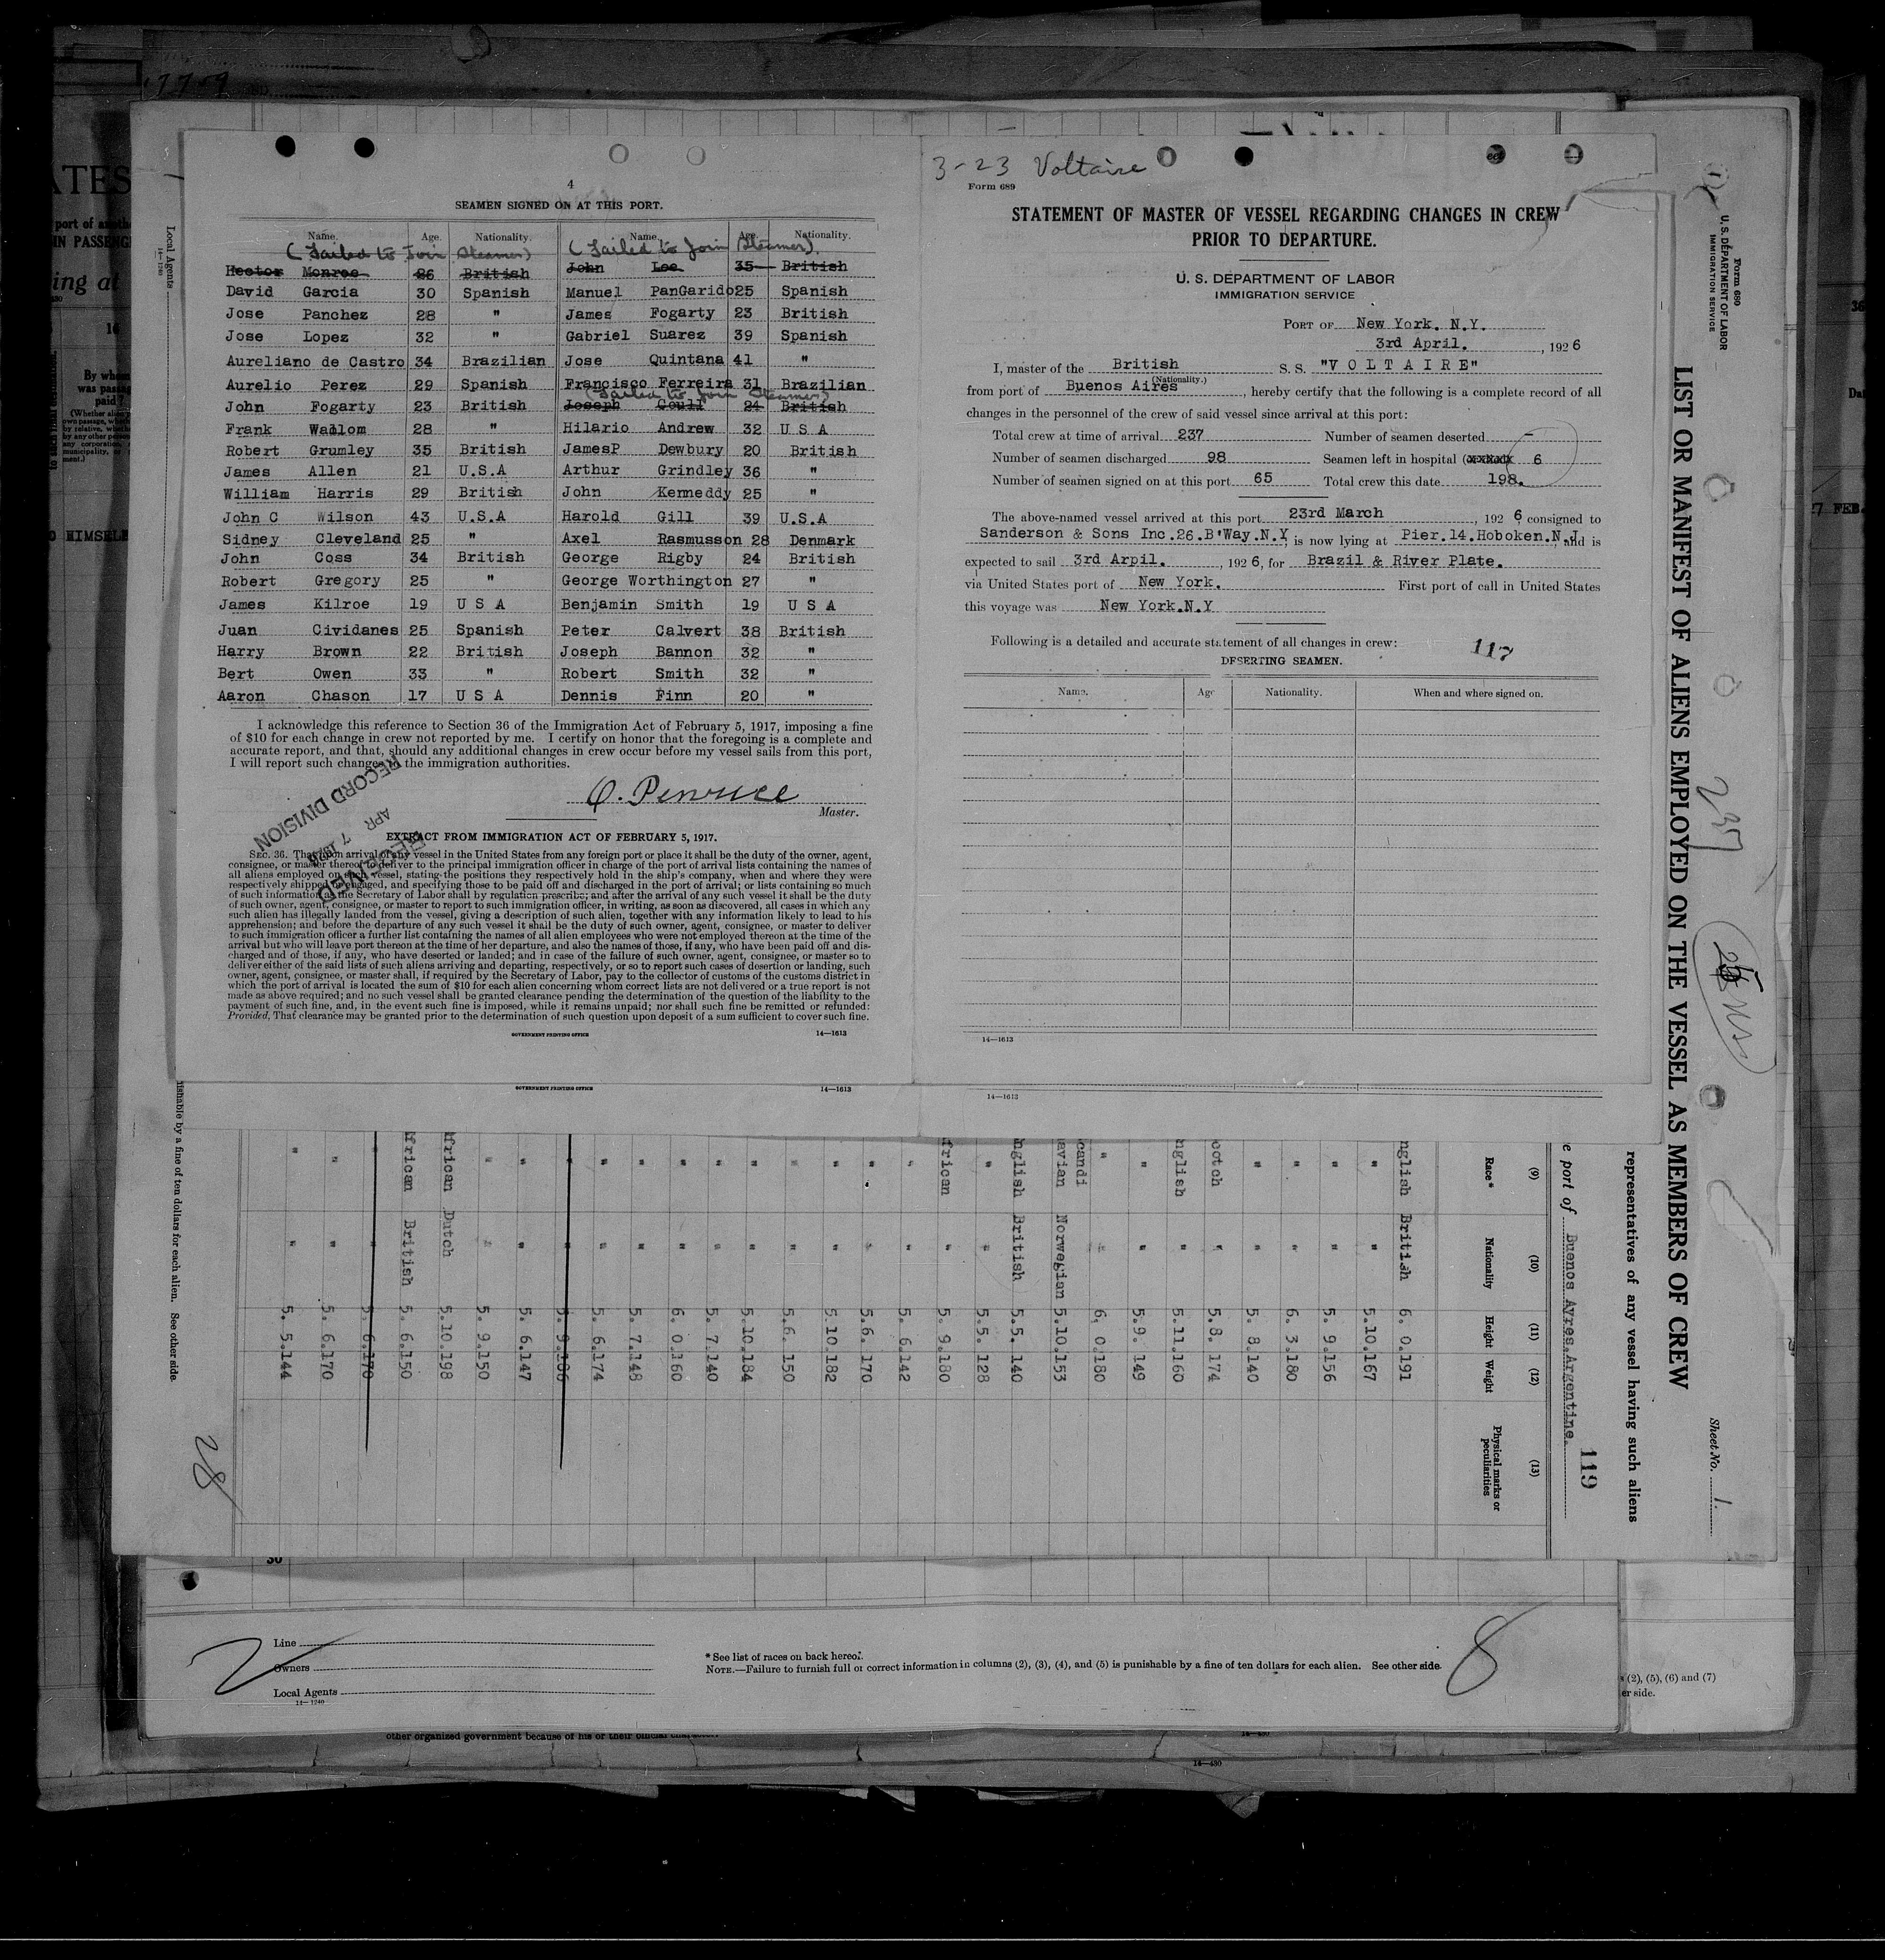 4
SEAMEN SIGNED ON AT THIS PORT.
Name. Age. Nationality. Name. Age. Nationality.
(Failed to Join Steamer) (Failed to Join Steamer).
Hector Monroe 26 British John Lee 35 British
David Garcia 30 Spanish Manuel PanGarido 25 Spanish
Jose Panchez 28 " James Fogarty 23 British
Jose Lopez 32 " Gabriel Suarez 39 Spanish
Aureliano de Castro 34 Brazilian Jose Quintana 41 "
Aurelio Perez 29 Spanish Francisco Ferreira 31 Brazilian
(Failed to Join Steamer)
John Fogarty 23 British Joseph Coull 24 British
Frank Wadlom 28 " Hilario Andrew 32 U S A
Robert Grumley 35 British JamesP Dewbury 20 British
James Allen 21 U.S.A Arthur Grindley 36 "
William Harris 29 British John Kenneddy 25 "
John C Wilson 43 U.S.A Harold Gill 39 U.S.A
Sidney Cleveland 25 " Axel Rasmusson 28 Denmark
John Coss 34 British George Rigby 24 British
Robert Gregory 25 " George Worthington 27 "
James Kilroe 19 U S A Benjamin Smith 19 U S A
Juan Cividanes 25 Spanish Peter Calvert 38 British
Harry Brown 22 British Joseph Bannon 32 "
Bert Owen 33 " Robert Smith 32 "
Aaron Chason 17 U S A Dennis Finn 20 "
I acknowledge this reference to Section 36 of the Immigration Act of February 5, 1917, imposing a fine
of $10 for each change in crew not reported by me. I certify on honor that the foregoing is a complete and
accurate report, and that, should any additional changes in crew occur before my vessel sails from this port,
I will report such changes to the immigration authorities.
Master.
RECEIVED
APR 7 1926
RECORD DIVISION
EXTRACT FROM IMMIGRATION ACT OF FEBRUARY 5, 1917.
SEC. 36. That upon arrival of any vessel in the United States from any foreign port or place it shall be the duty of the owner, agent,
consignee, or master thereof to deliver to the principal immigration officer in charge of the port of arrival lists containing the names of
all aliens employed on such vessel, stating the positions they respectively hold in the ship's company, when and where they were
respectively shipped or engaged, and specifying those to be paid off and discharged in the port of arrival; or lists containing so much
of such information as the Secretary of Labor shall by regulation prescribe; and after the arrival of any such vessel it shall be the duty
of such owner, agent, consignee, or master to report to such immigration officer, in writing, as soon as discovered, all cases in which any
such alien has illegally landed from the vessel, giving a description of such alien, together with any information likely to lead to his
apprehension; and before the departure of any such vessel it shall be the duty of such owner, agent, consignee, or master to deliver
to such immigration officer a further list containing the names of all alien employees who were not employed thereon at the time of the
arrival but who will leave port thereon at the time of her departure, and also the names of those, if any, who have been paid off and dis-
charged and of those, if any, who have deserted or landed; and in case of the failure of such owner, agent, consignee, or master so to
deliver either of the said lists of such aliens arriving and departing, respectively, or so to report such cases of desertion or landing, such
owner, agent, consignee, or master shall, if required by the Secretary of Labor, pay to the collector of customs of the customs district in
which the port of arrival is located the sum of $10 for each alien concerning whom correct lists are not delivered or a true report is not
made as above required; and no such vessel shall be granted clearance pending the determination of the question of the liability to the
payment of such fine, and, in the event such fine is imposed, while it remains unpaid; nor shall such fine be remitted or refunded:
Provided, That clearance may be granted prior to the determination of such question upon deposit of a sum sufficient to cover such fine.
GOVERNMENT PRINTING OFFICE 14—1613
GOVERNMENT PRINTING OFFICE 14—1613
3-23 Voltaire
Form 689
STATEMENT OF MASTER OF VESSEL REGARDING CHANGES IN CREW
PRIOR TO DEPARTURE.
U. S. DEPARTMENT OF LABOR
IMMIGRATION SERVICE
PORT OF New York. N.Y.
3rd April. , 1926
I, master of the British S. S. "V O L T A I R E"
(Nationality.)
from port of Buenos Aires , hereby certify that the following is a complete record of all
changes in the personnel of the crew of said vessel since arrival at this port:
Total crew at time of arrival 237 Number of seamen deserted -
Number of seamen discharged 98 Seamen left in hospital (xxxxxx 6
Number of seamen signed on at this port 65 Total crew this date 198.
The above-named vessel arrived at this port 23rd March , 192 6, consigned to
Sanderson & Sons Inc.26.B'Way.N.Y, is now lying at Pier.14.Hoboken.N.J, and is
expected to sail 3rd Arpil. , 192 6, for Brazil & River Plate.
via United States port of New York. First port of call in United States
this voyage was New York.N.Y
Following is a detailed and accurate statement of all changes in crew:
117
DESERTING SEAMEN.
Name. Age Nationality. When and where signed on.
14—1613
14—1613
Form 689
U. S. DEPARTMENT OF LABOR
IMMIGRATION SERVICE
LIST OR MANIFEST OF ALIENS EMPLOYED ON THE VESSEL AS MEMBERS OF CREW
237
Sheet No. 1.
representatives of any vessel having such aliens
e port of Buenos Ayres.Argentine.
119
(9) (10) (11) (12) (13)
Race* Nationality Height Weight Physical marks or peculiarities
nglish British 6. 0.191
" " 5.10.167
" " 5. 9.156
" " 6. 3.180
" " 5. 8.140
cotch " 5.8. 174
nglish " 5.11.160
" " 5.9. 149
" " 6. 0.180
candi
avian Norwegian 5.10.153
nglish British 5.5. 140
" " 5.5. 128
frican " 5. 9.180
" " 5. 6.142
" " 5.6. 170
" " 5.10.182
" " 5.6. 150
" " 5.10.184
" " 5. 7.140
" " 6. 0.160
" " 5. 7.148
" " 5. 6.174
" " 5. 6.147
" " 5. 9.150
frican Dutch 5.10.198
frican British 5. 6.150
" " 5. 6.170
" " 5. 5.144
ishable by a fine of ten dollars for each alien. See other side.
28
Local Agents
14—1240
30
Line
Owners
Local Agents
14—1240
2
* See list of races on back hereof.
NOTE.—Failure to furnish full or correct information in columns (2), (3), (4), and (5) is punishable by a fine of ten dollars for each alien. See other side.
8
(2), (5), (6) and (7)
er side.
other organized government because of his or their official character.
14—430
ATES
port of anoth
IN PASSENG
ing at
16
By whom
was passag
paid?
O HIMSELF
7 FEB.